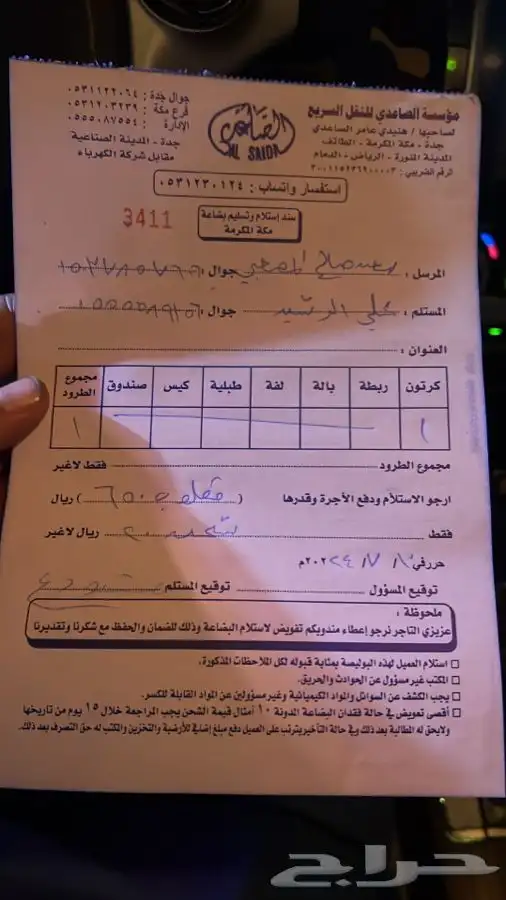 مؤسسة الصاعدي للنقل السريع
لصاحبها / هنيدي عامر الصاعدي
جدة - مكة المكرمة - الطائف
المدينة المنورة - الرياض - الدمام
الرقم الضريبي :
الصاعدي
AL SAIDA
جوال جدة : ٠٥٣١٢٢٢٠٦٤
فرع مكة : ٠٥٣١٢٠٣٢٣٩
الإدارة : ٠٥٥٥٠٨٧٥٥٤
جدة - المدينة الصناعية
مقابل شركة الكهرباء
استفسار واتساب : ٠٥٣١٢٣٠١٢٤
3411
سند إستلام وتسليم بضاعة
مكة المكرمة
المرسل : صالح جوال :
المستلم : علي الرشيد جوال :
العنوان :
كرتون ربطة بالة لفة طبلية كيس صندوق مجموع الطرود
١ ١
مجموع الطرود فقط لاغير
ارجو الاستلام ودفع الأجرة وقدرها ( ) ريال
فقط ريال لاغير
حرر في ٨ / ٧ / ٢٠٢٤م
توقيع المسؤول توقيع المستلم
ملحوظة :
عزيزي التاجر نرجو إعطاء مندوبكم تفويض لاستلام البضاعة وذلك للضمان والحفظ مع شكرنا وتقديرنا
استلام العميل لهذه البوليصة بمثابة قبوله لكل الملاحظات المذكورة.
المكتب غير مسؤول عن الحوادث والحريق.
يجب الكشف عن السوائل والمواد الكيميائية وغير مسؤولين عن المواد القابلة للكسر.
أقصى تعويض في حالة فقدان البضاعة المدونة ١٠ أمثال قيمة الشحن يجب المراجعة خلال ١٥ يوم من تاريخها
ولايحق له المطالبة بعد ذلك وفي حالة التأخير يترتب على العميل دفع مبلغ إضافي للأرضية والتخزين والمكتب له حق التصرف بعد ذلك.
حراج